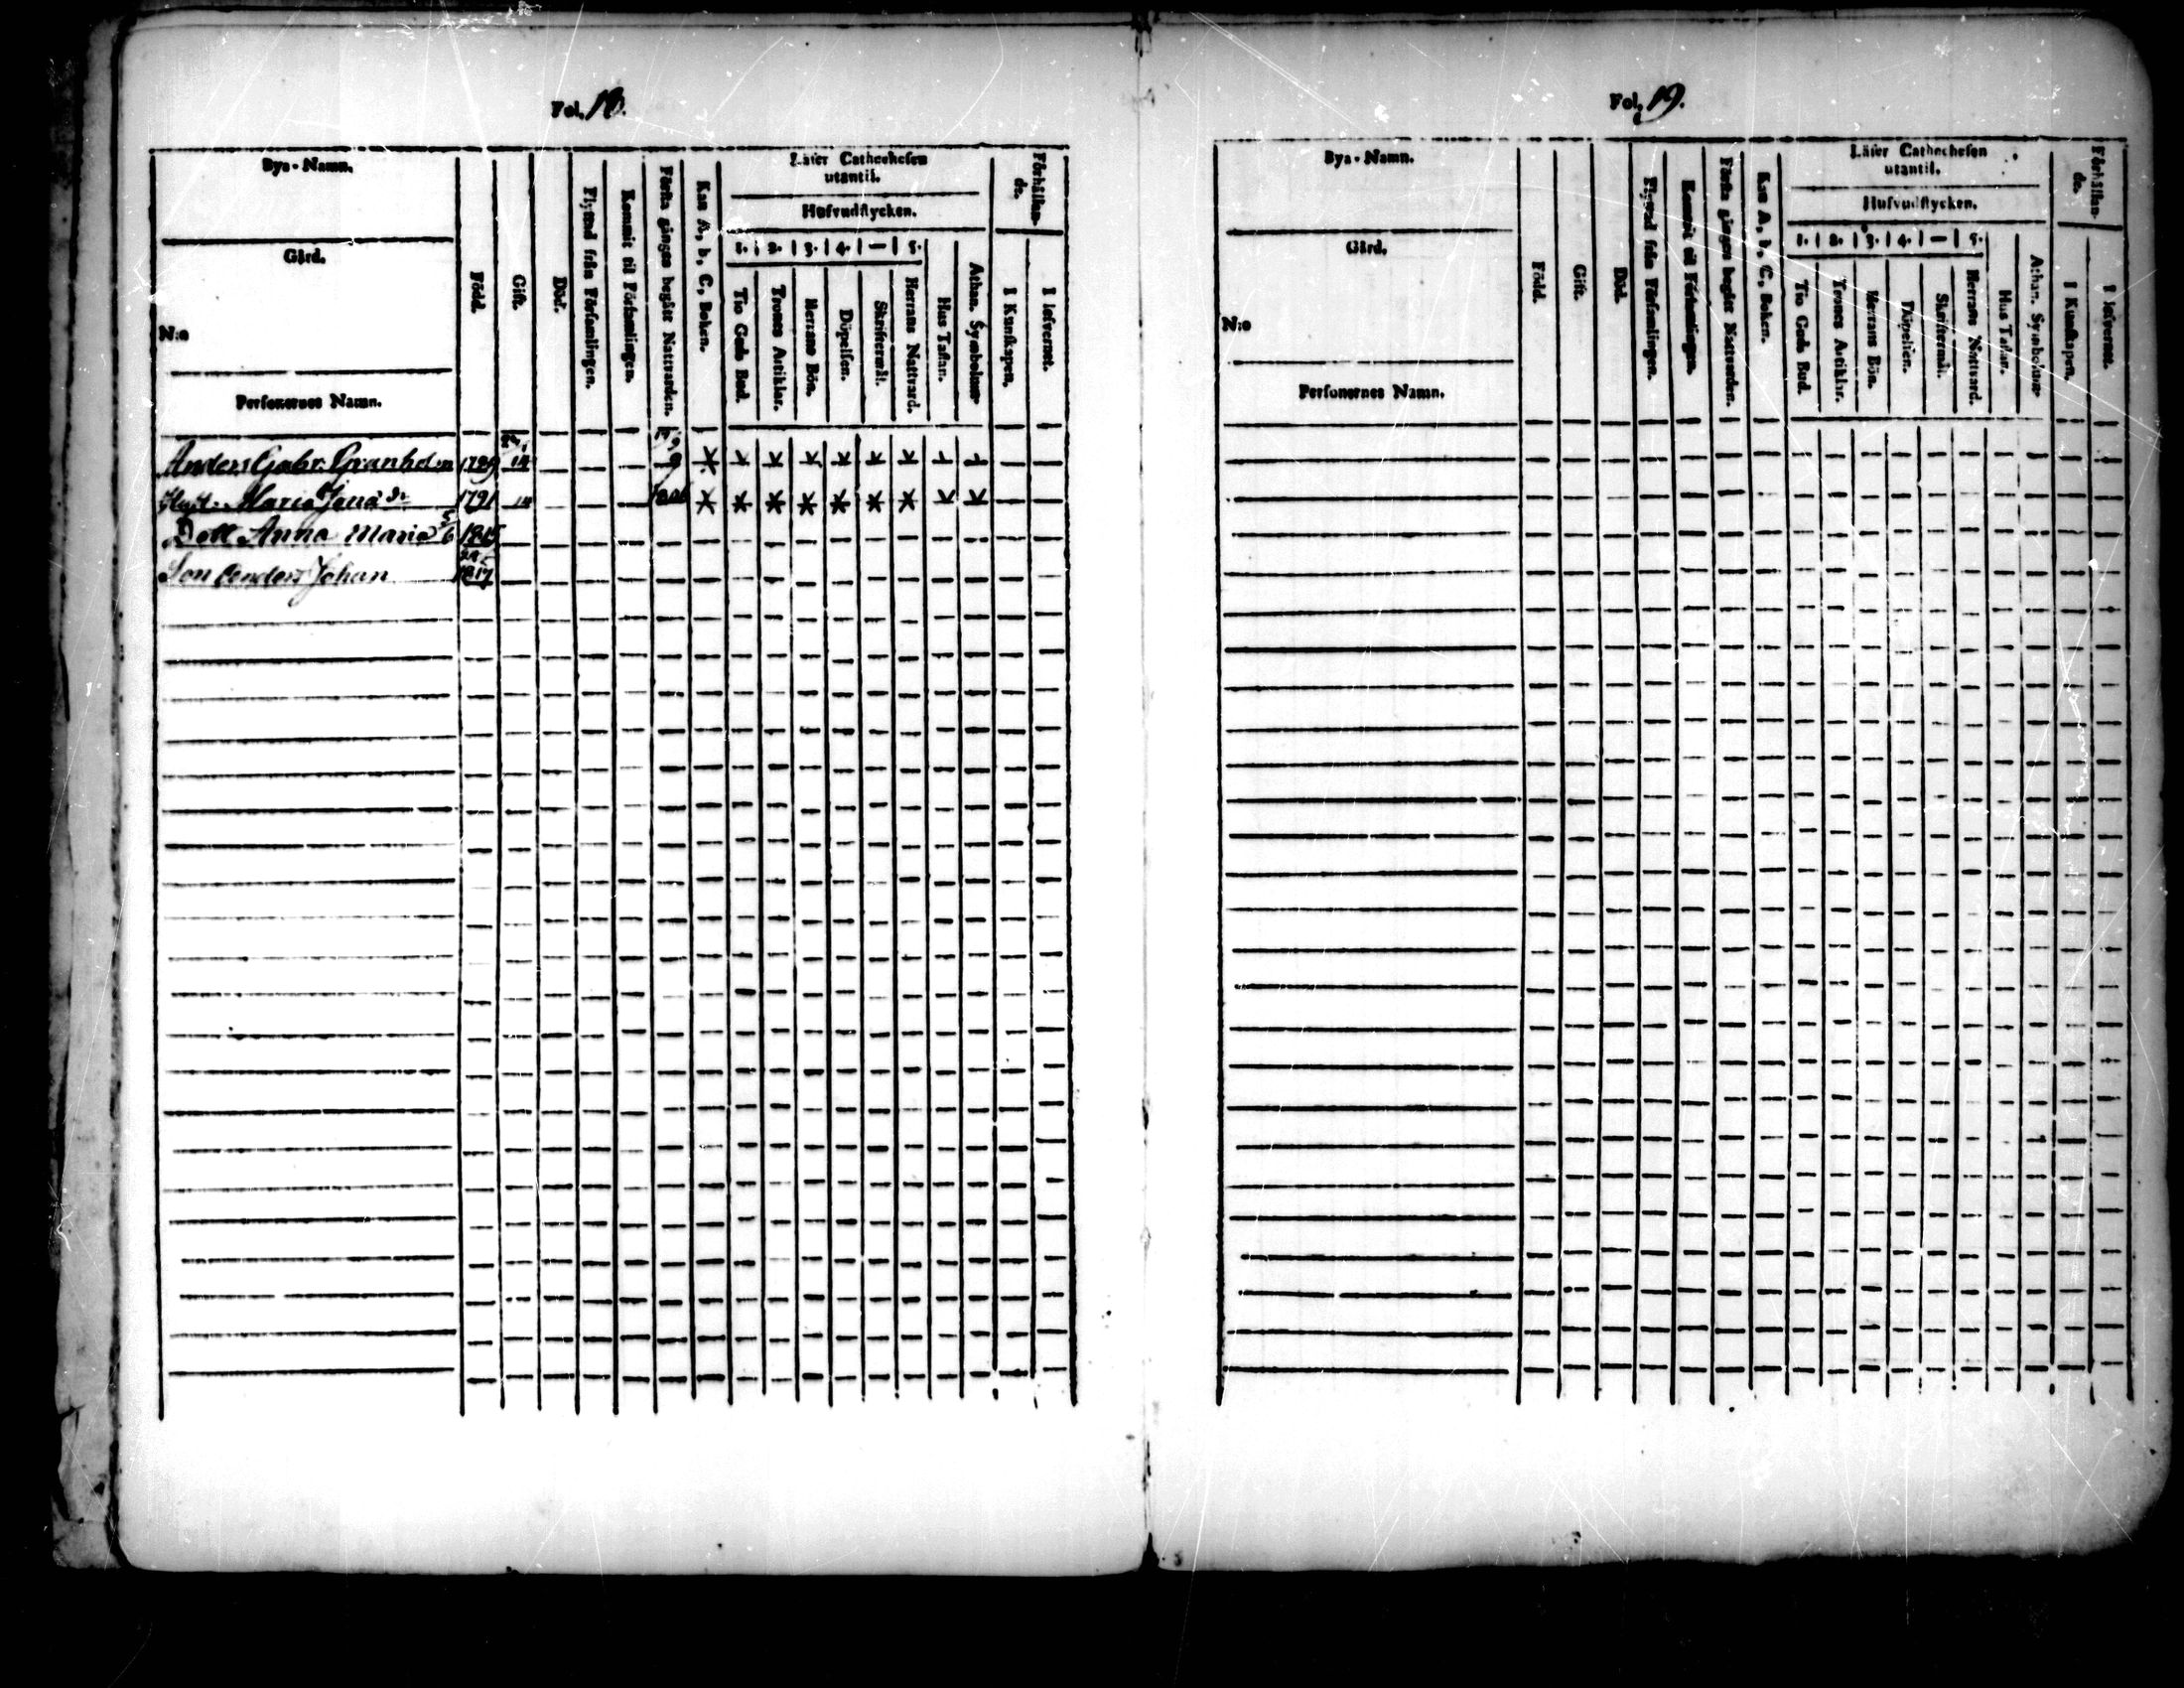 Fol. 18.
Bya-Namn.
Gård.
N:o
Personernes Namn.
Född.
Gift.
Död.
Flyttad från Församlingen.
Kommit til Församlingen.
Första gången begått Nattvarden.
Kan A, b, C, Boken.
Läser Cathechesen
utantil.
Hufvudstycken.
1. 2. 3. 4. — 5.
Tio Guds Bud.
Trones Artiklar.
Herrans Bön.
Döpelsen.
Skriftermål.
Herrans Nattvard.
Hus Taflan.
Athan. Symbolum
Förhållan-
de.
I Kunskapen.
I lefvernet.
Anders Gabr. Granholm 1789 14
Hust. Maria Jona dr 1791 14
Dott Anna Maria 5/6 1815
Son Anders Johan 1817
Fol. 19.
Bya-Namn.
Gård.
N:o
Personernes Namn.
Född.
Gift.
Död.
Flyttad från Församlingen.
Kommit til Församlingen.
Första gången begått Nattvarden.
Kan A, b, C, Boken.
Läser Cathechesen
utantil.
Hufvudstycken.
1. 2. 3. 4. — 5.
Tio Guds Bud.
Trones Artiklar.
Herrans Bön.
Döpelsen.
Skriftermål.
Herrans Nattvard.
Hus Taflan.
Athan. Symbolum
Förhållan-
de.
I Kunskapen.
I lefvernet.